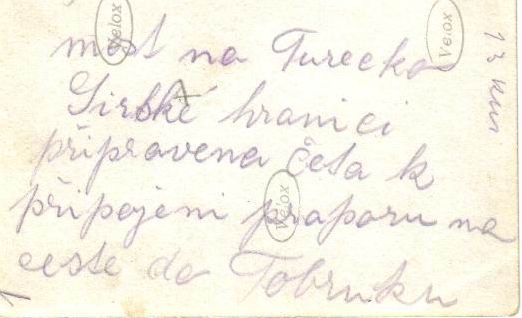 most na Turecko
Sirské hranici
připravena četa k
připojeni praporu na
ceste do Tobruku
Velox
Velox
Velox
13 km